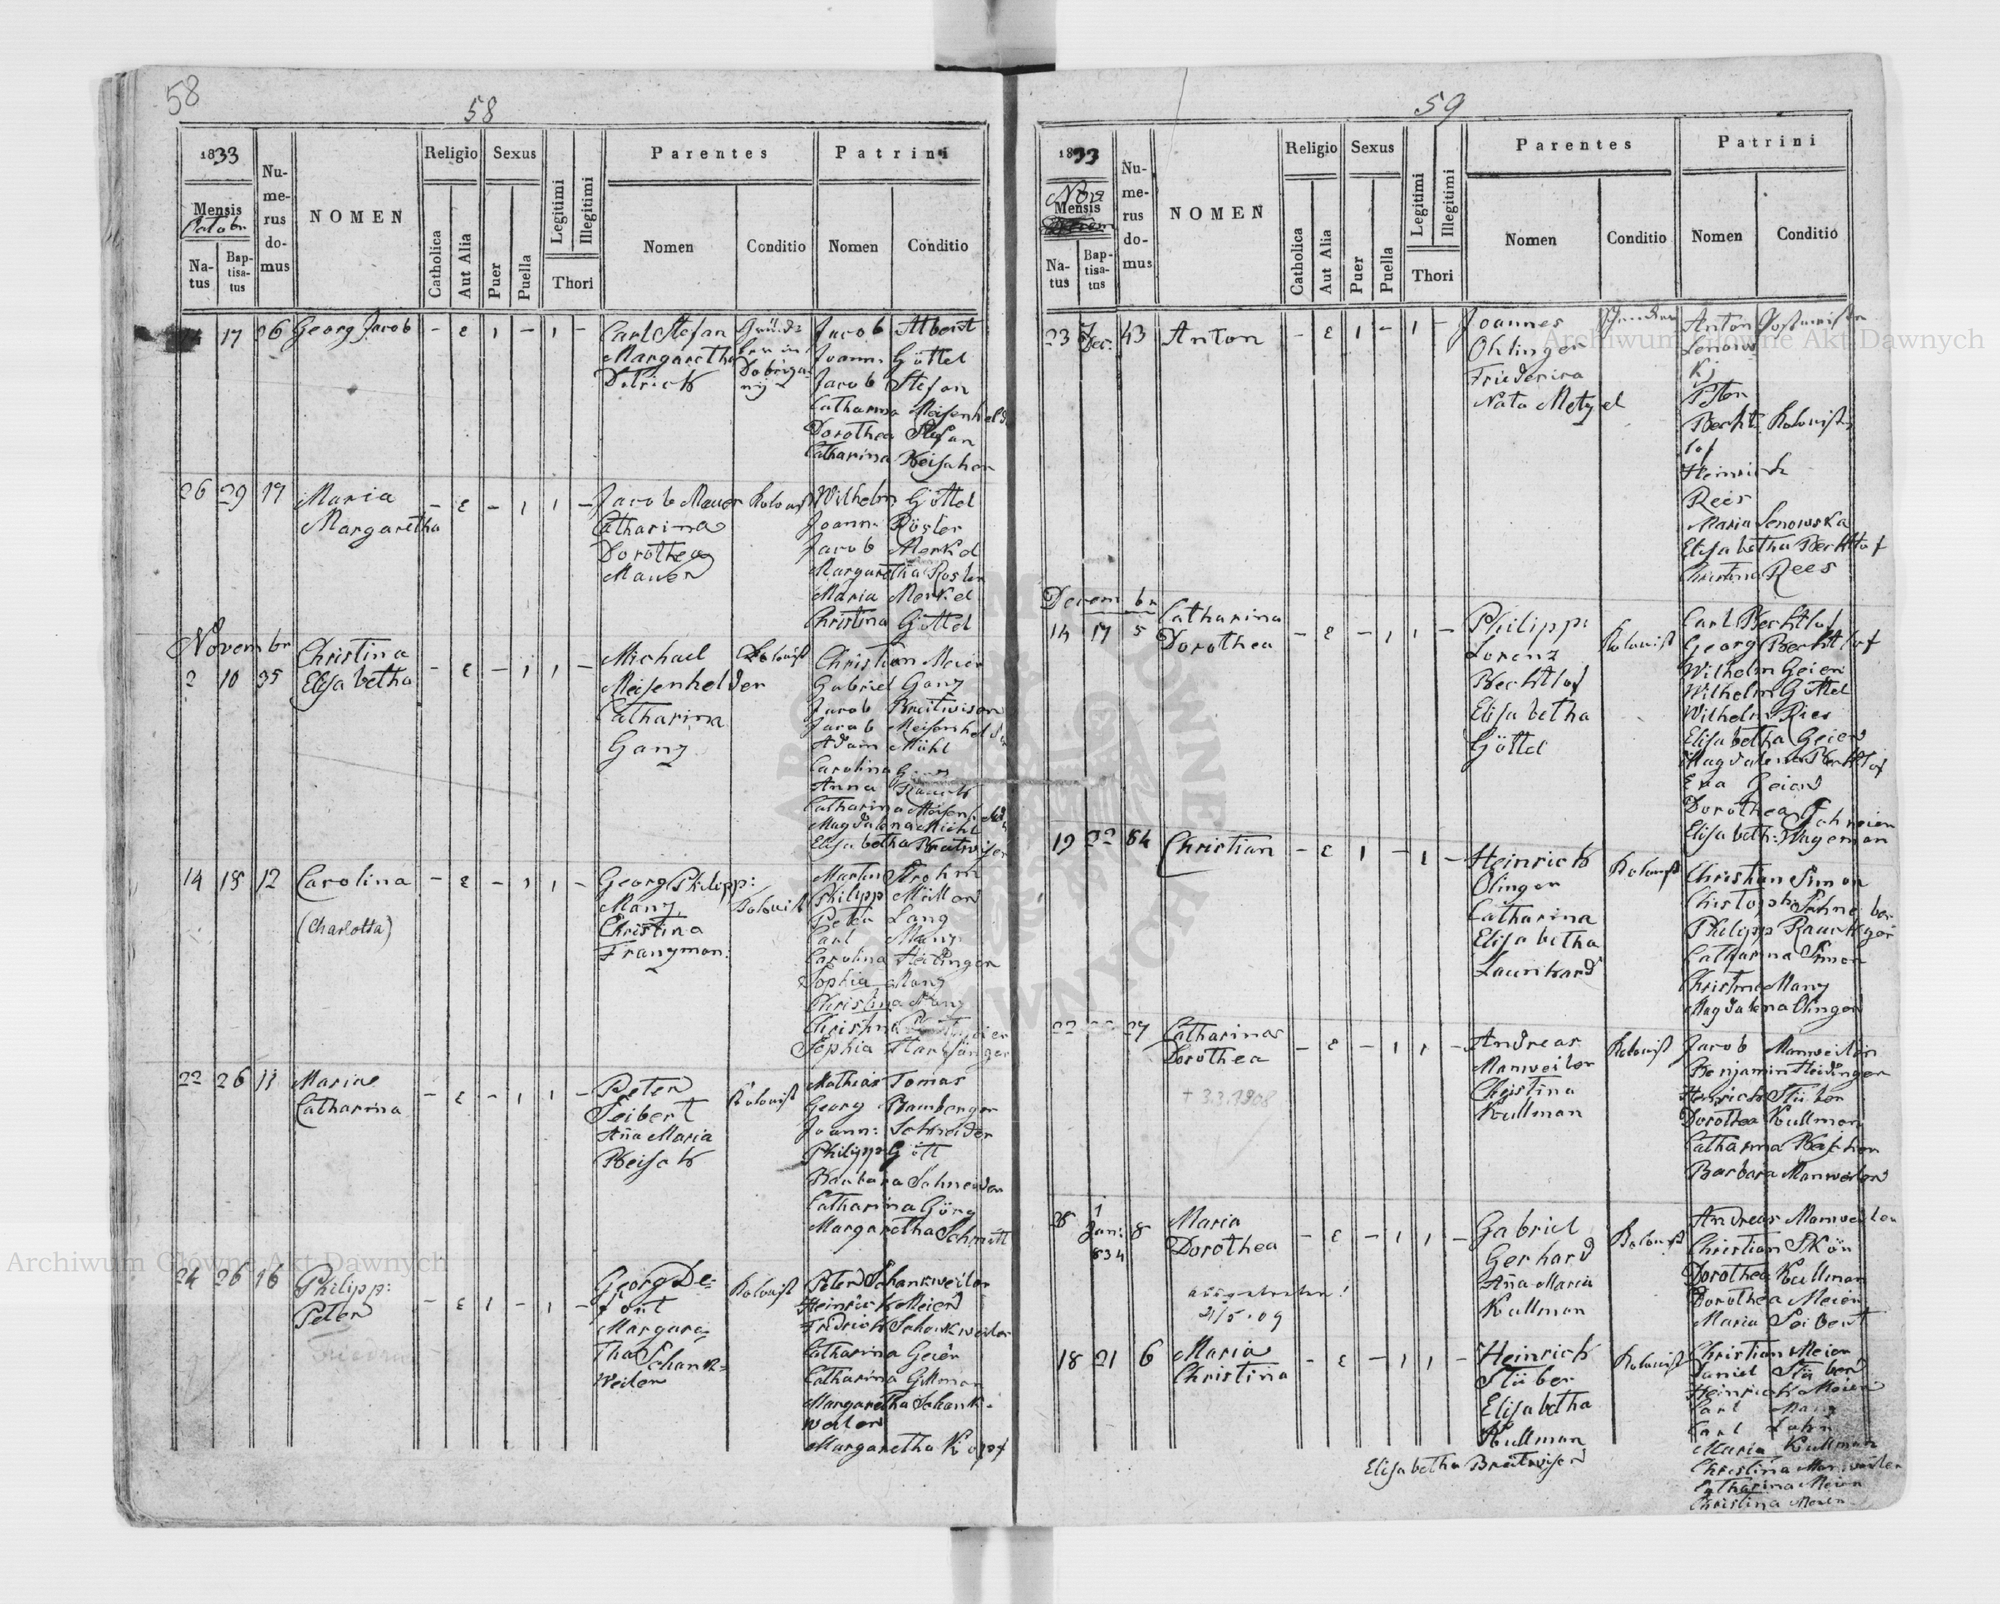 58
58
1833
Mensis
Octobr
Natus
Baptisatus
Numerus domus
NOMEN
Religio
Catholica
Aut Alia
Sexus
Puer
Puella
Legitimi
Illegitimi
Thori
Parentes
Nomen
Conditio
Patrini
Nomen
Conditio
17 26 Georg Jacob - ε 1 - 1 -
Carl Stefan
Margaretha
Jacob Albert
Joann: Göttel
Jacob Stefan
Catharina Meisenhelder
Dorothea Stefan
Catharina
26 29 17 Maria - ε - 1 1 -
Margaretha
Jacob Mauer Kolonist
Catharina
Dorothea
Mauer
Wilhelm Göttel
Joann: Rösler
Jacob Merkel
Margaretha Rosler
Maria Merkel
Christina Göttel
Novembr
2 10 35 Christina - ε - 1 1 -
Elisabetha
Michael Kolonist
Meisenhelder
Catharina
Ganz
Christian Meier
Gabriel Ganz
Jacob Breitwiser
Jacob Meisenhelder
Adam Mühl
Carolina
Anna
Catharina
Magdalena Mühl
Elisabetha Breitwiser
14 18 12 Carolina - ε - 1 1 -
(Charlotta)
Georg Philipp:
Manz Kolonist
Christina
Franzman:
Martin Strohm
Philipp Müller
Peter Lang
Carl Manz
Carolina Heidinger
Sophia Manz
Christina Manz
Christina
Sophia
22 26 11 Maria - ε - 1 1 -
Catharina
Peter Kolonist
Seibert
Aña Maria
Mathias Tomas
Georg Bamberger
Joann: Schneider
Philipp Gött
Barbara Schneider
Catharina Görg
Margaretha Schmitt
24 26 16 Philipp: - ε 1 - 1 -
Peter
Georg De= Kolonist
font
Margare=
tha Schank=
weiler
Peter Schankweiler
Heinrich Meier
Fridrich Schankweiler
Catharina Geier
Catharina Gillman
Margaretha Schank-
weiler
Margaretha Kopf
59
1833
Novr
Mensis
Natus
Baptisatus
Numerus domus
NOMEN
Religio
Catholica
Aut Alia
Sexus
Puer
Puella
Legitimi
Illegitimi
Thori
Parentes
Nomen
Conditio
Patrini
Nomen
Conditio
23 Dec: 43 Anton - ε 1 - 1 -
Joannes
Ohlinger
Friederica
Nata Metzel
Anton
Peter
Becht Kolonist
lof
Heinrich
Rees
Maria Senowska
Elisabetha Bechtlof
Christina Rees
Decembr
14 17 5 Catharina - ε - 1 1 -
Dorothea
Philipp: Kolonist
Lorenz
Bechtlof
Elisabetha
Göttel
Carl Bechtlof
Georg Bechtlof
Wilhelm Geier
Wilhelm Göttel
Wilhelm Ries
Elisabetha Geier
Magdalena Bechtlof
Eva Geier
Dorothea
Elisabeth: Wageman
19 22 84 Christian - ε 1 - 1 -
Heinrich Kolonist
Olinger
Catharina
Elisabetha
Christian Simon
Christoph:
Philipp
Catharina Simon
Christina Manz
Magdalena Olinger
22 27 Catharina - ε - 1 1 -
Dorothea
+ 3.3.1908
Andreas Kolonist
Manweiler
Christina
Kullman
Jacob Manweiler
Benjamin Heidinger
Heinrich Stüber
Dorothea Kullman
Catharina
Barbara Manweiler
28 1 Jan: 834 8 Maria - ε - 1 1 -
Dorothea
21/5.09
Gabriel Kolonist
Gerhard
Aña Maria
Kullman
Andreas Manweiler
Christian Skön
Dorothea Kullman
Dorothea Meier
Maria Seibert
18 21 6 Maria - ε - 1 1 -
Christina
Heinrich Kolonist
Stüber
Elisabetha
Kullman
Christian Meier
Daniel Stüber
Heinrich Meier
Carl Manz
Carl Lahn
Maria Kullman
Christina Manweiler
Catharina Meier
Christina Meier
Elisabetha Breitwiser
Archiwum Główne Akt Dawnych
Archiwum Główne Akt Dawnych